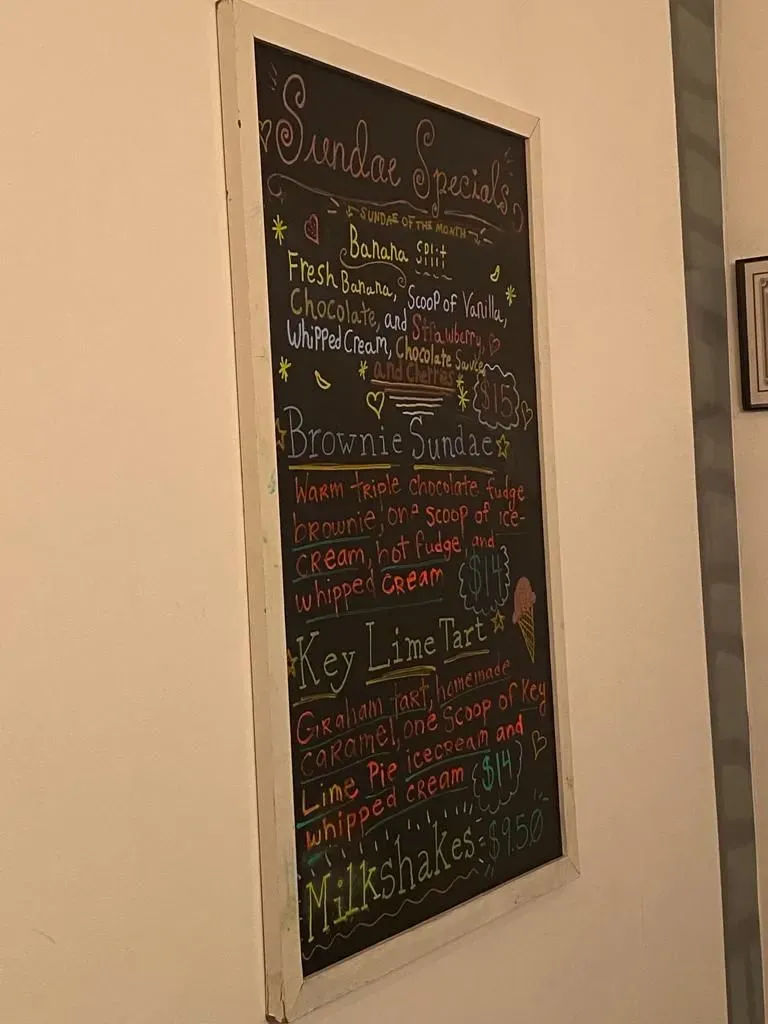 Sundae Specials
SUNDAE OF THE MONTH
Banana Split
Fresh Banana, Scoop of Vanilla,
Chocolate, and Strawberry,
Whipped Cream, Chocolate Sauce,
and Cherries $15
Brownie Sundae
Warm triple chocolate fudge
brownie, one scoop of ice-
cream, hot fudge and
whipped cream $14
Key Lime Tart
Graham tart, homemade
caramel, one scoop of Key
Lime Pie icecream and
whipped cream $14
Milkshakes $9.50